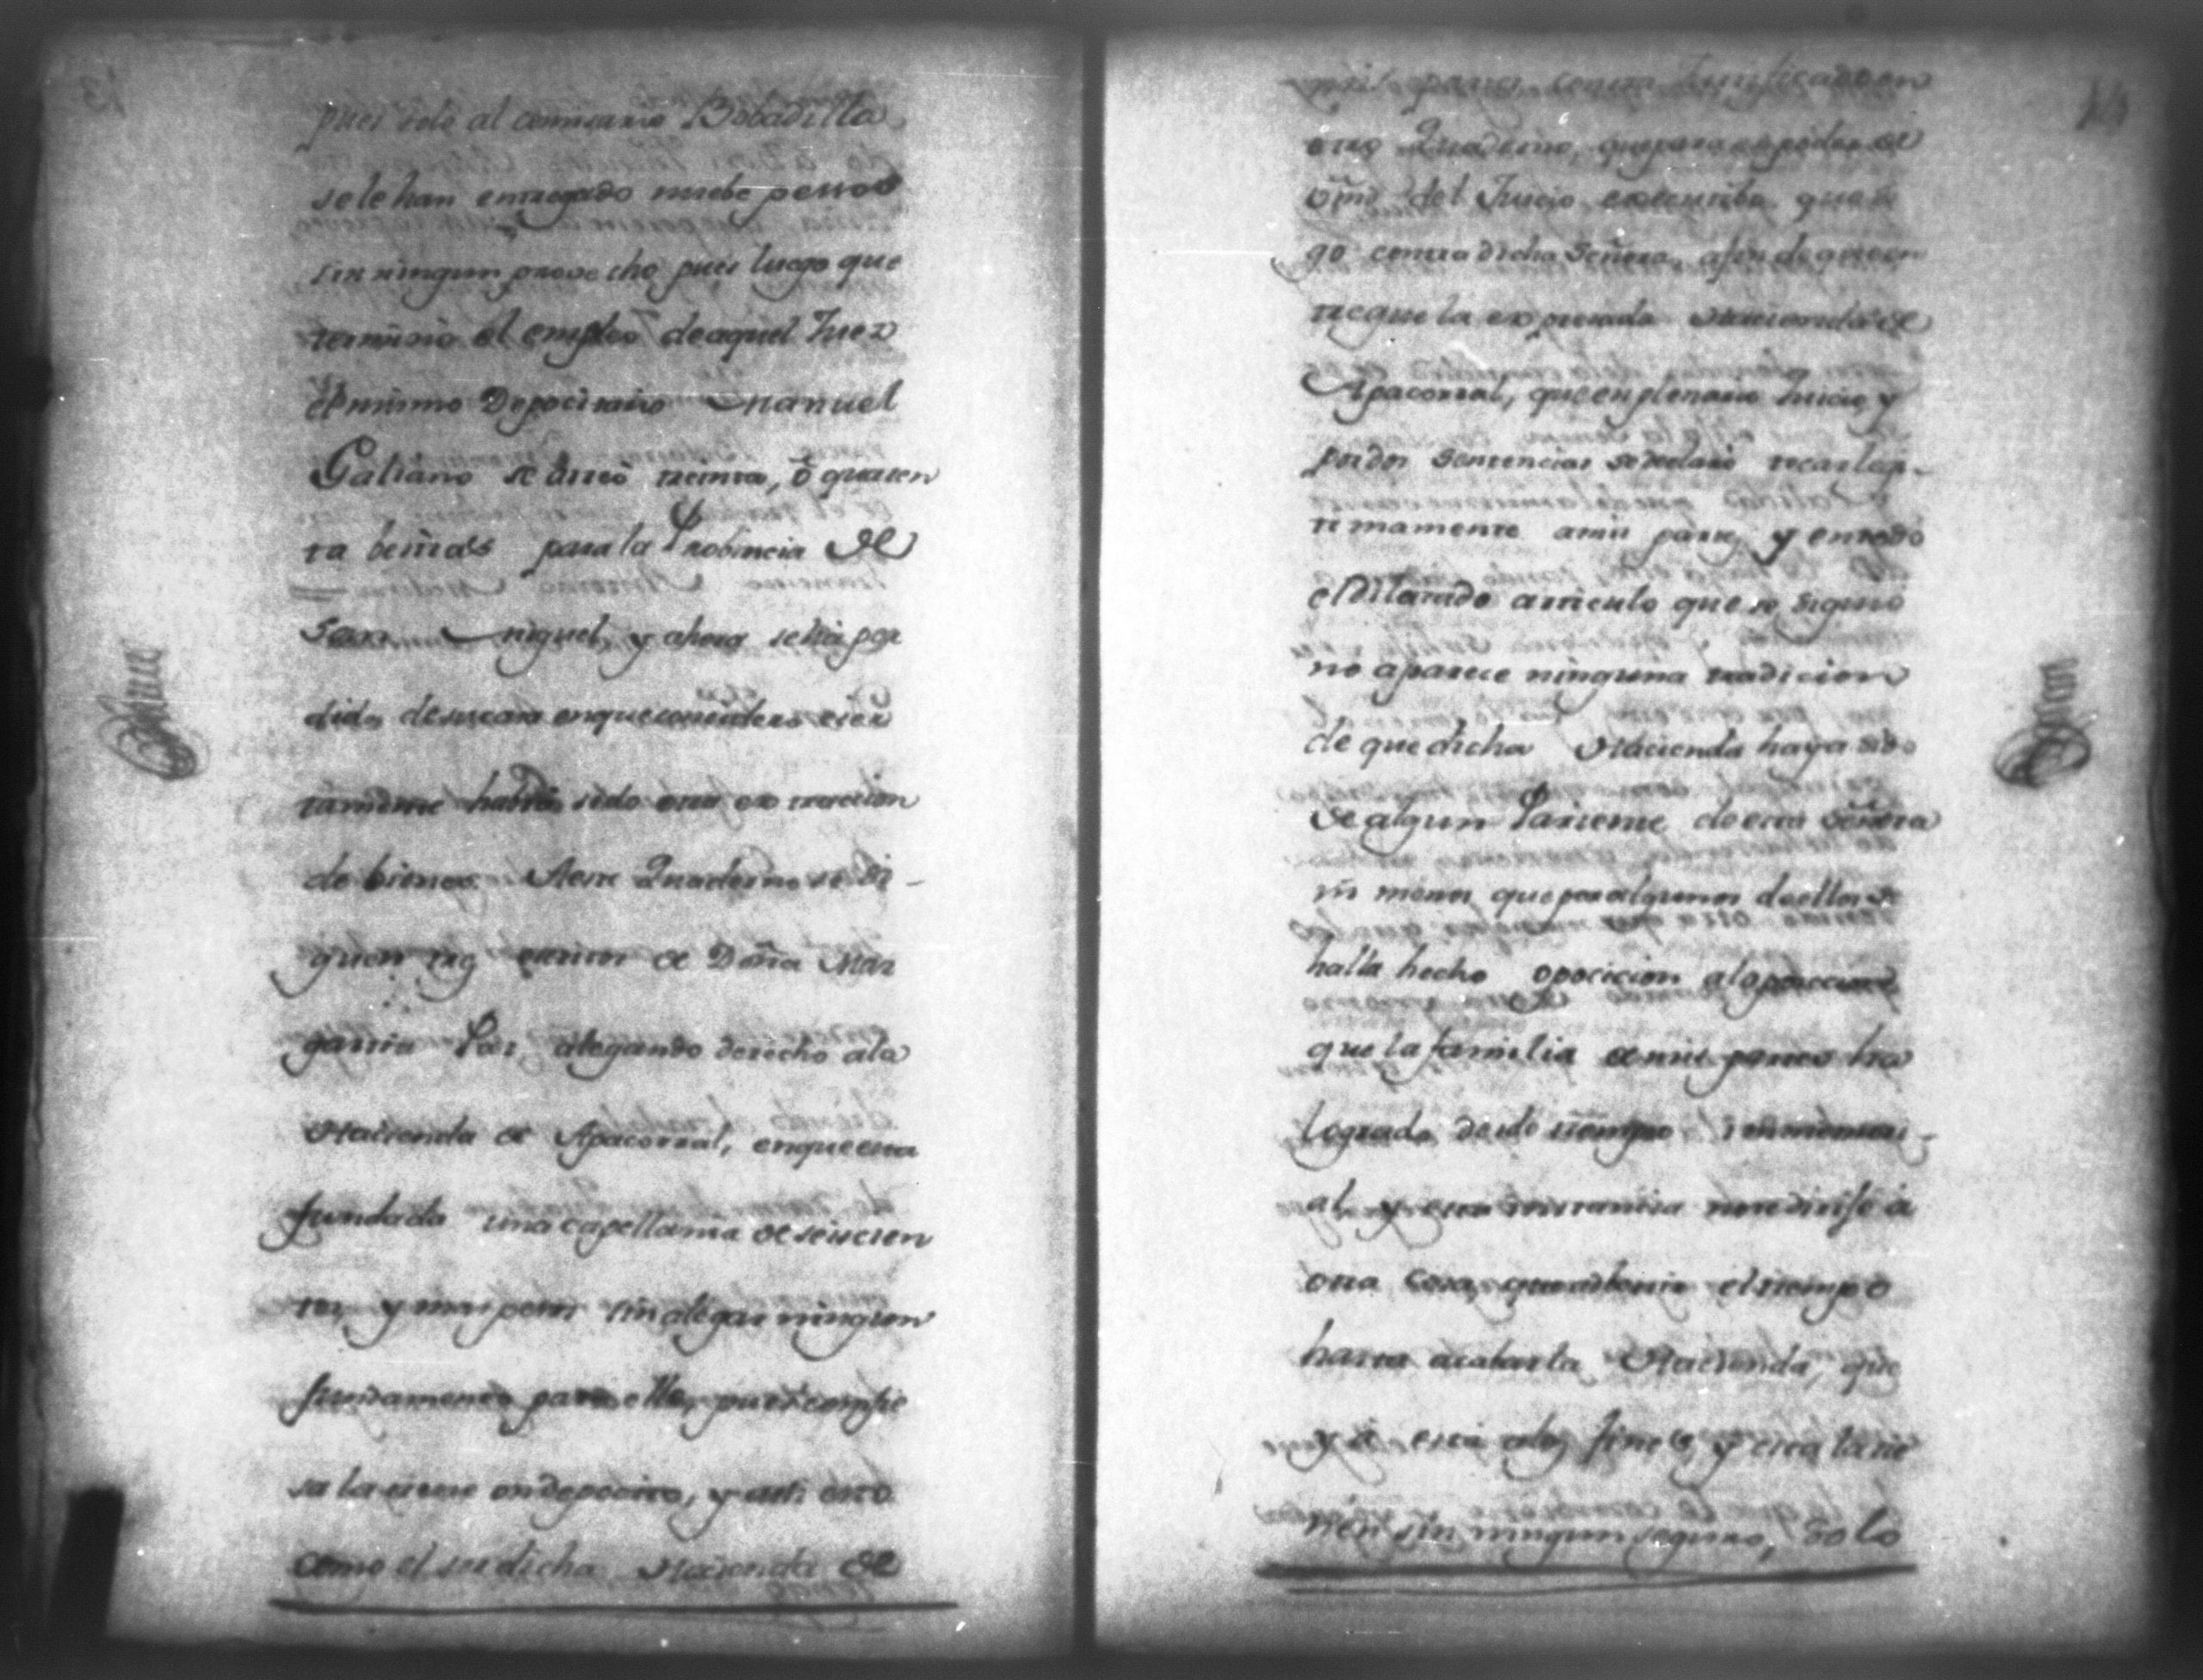 pues solo al comisario Bobadilla
se le han entregado nuebe pessos
sin ningun probecho, pues luego que
termino el empleo de aquel Juez
el mismo Depocitario Manuel
Galiano se llevó treinta, ó quaren
ta bestias para la Probincia de
San Miguel, y ahora se ha per
dido de su casa en que considero cier
tamente habrá sido otra extraccion
de bienes. A este Quaderno se si-
guen tres escritos de Doña Mar
garita Paz, alegando derecho a la
Hacienda de Apacorral, en que esta
fundada una capellania de seiscien
tos, y mas pesos sin alegar ningun
fundamento para ello, pues confie
sa la tiene en deposito, y asi esto
como el ser dicha Hacienda de
mis partes consta Justificado en
otro Quaderno, que para expedir el
del Juicio que si
go contra dicha Señora, a fin de que en
tregue la expresada Hacienda de
Apacorral, que en plenario Juicio, y
por dos sentencias se declaró tocar legi-
timamente a mis partes, y en todo
el dilatado articulo que se siguio
no aparece ninguna tradicion
de que dicha Hacienda haya sido
de algun Pariente de esta Señora
ni menos que por alguno de ellos se
halla hecho opocicion a la poseccion
que la familia de mis partes ha
logrado desde tiempo immemori-
al, y esta instancia no se dirige a
otra cosa, que a el tiempo
hasta acabar la Hacienda, que
ya esta a los fines, y esta la tie
nen sin ningun seguro, solo